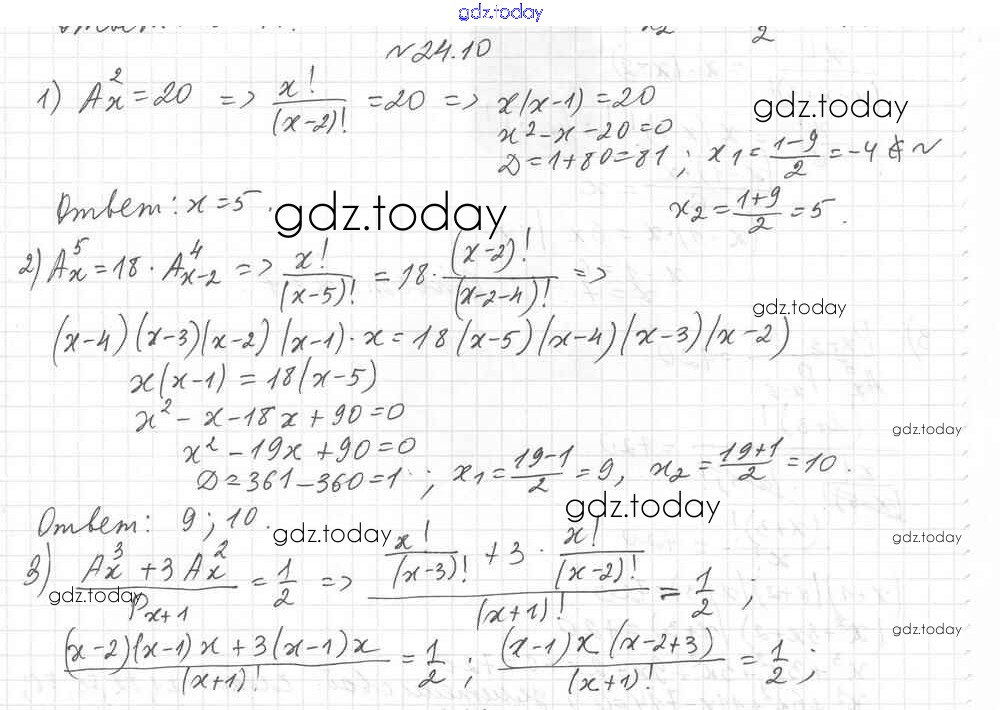 gdz.today
№24.10
1) Aₓ² = 20 => x!/(x-2)! = 20 => x(x-1) = 20
gdz.today
x² - x - 20 = 0
D = 1 + 80 = 81 ; x₁ = (1-9)/2 = -4 ∉ N
Ответ: x = 5.
x₂ = (1+9)/2 = 5.
gdz.today
2) Aₓ⁵ = 18 · Aₓ₋₂⁴ => x!/(x-5)! = 18 · (x-2)!/(x-2-4)! =>
gdz.today
(x-4)(x-3)(x-2)(x-1)·x = 18(x-5)(x-4)(x-3)(x-2)
x(x-1) = 18(x-5)
x² - x - 18x + 90 = 0
gdz.today
x² - 19x + 90 = 0
D = 361 - 360 = 1 ; x₁ = (19-1)/2 = 9, x₂ = (19+1)/2 = 10.
Ответ: 9 ; 10.
gdz.today
gdz.today
gdz.today
3) (Aₓ³ + 3Aₓ²)/Pₓ₊₁ = 1/2 => (x!/(x-3)! + 3 · x!/(x-2)!)/(x+1)! = 1/2 ;
gdz.today
gdz.today
((x-2)(x-1)x + 3(x-1)x)/(x+1)! = 1/2 ; ((x-1)x(x-2+3))/(x+1)! = 1/2 ;